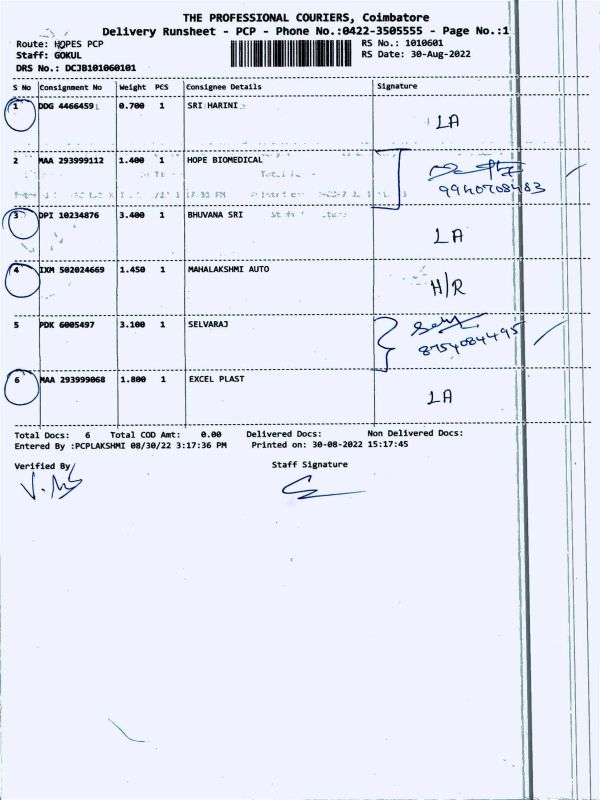 THE PROFESSIONAL COURIERS, Coimbatore
Delivery Runsheet - PCP - Phone No.:0422-3505555 - Page No.:1
Route: HOPES PCP RS No.: 1010601
Staff: GOKUL RS Date: 30-Aug-2022
DRS No.: DCJB101060101
S No Consignment No Weight PCS Consignee Details Signature
1 DDG 4466459 0.700 1 SRI HARINI LA
2 MAA 293999112 1.400 1 HOPE BIOMEDICAL
9940708483
3 DPI 10234876 3.400 1 BHUVANA SRI LA
4 IXM 502024669 1.450 1 MAHALAKSHMI AUTO H/R
5 PDK 6005497 3.100 1 SELVARAJ
8754084495
6 MAA 293999068 1.800 1 EXCEL PLAST LA
Total Docs: 6 Total COD Amt: 0.00 Delivered Docs: Non Delivered Docs:
Entered By :PCPLAKSHMI 08/30/22 3:17:36 PM Printed on: 30-08-2022 15:17:45
Verified By Staff Signature